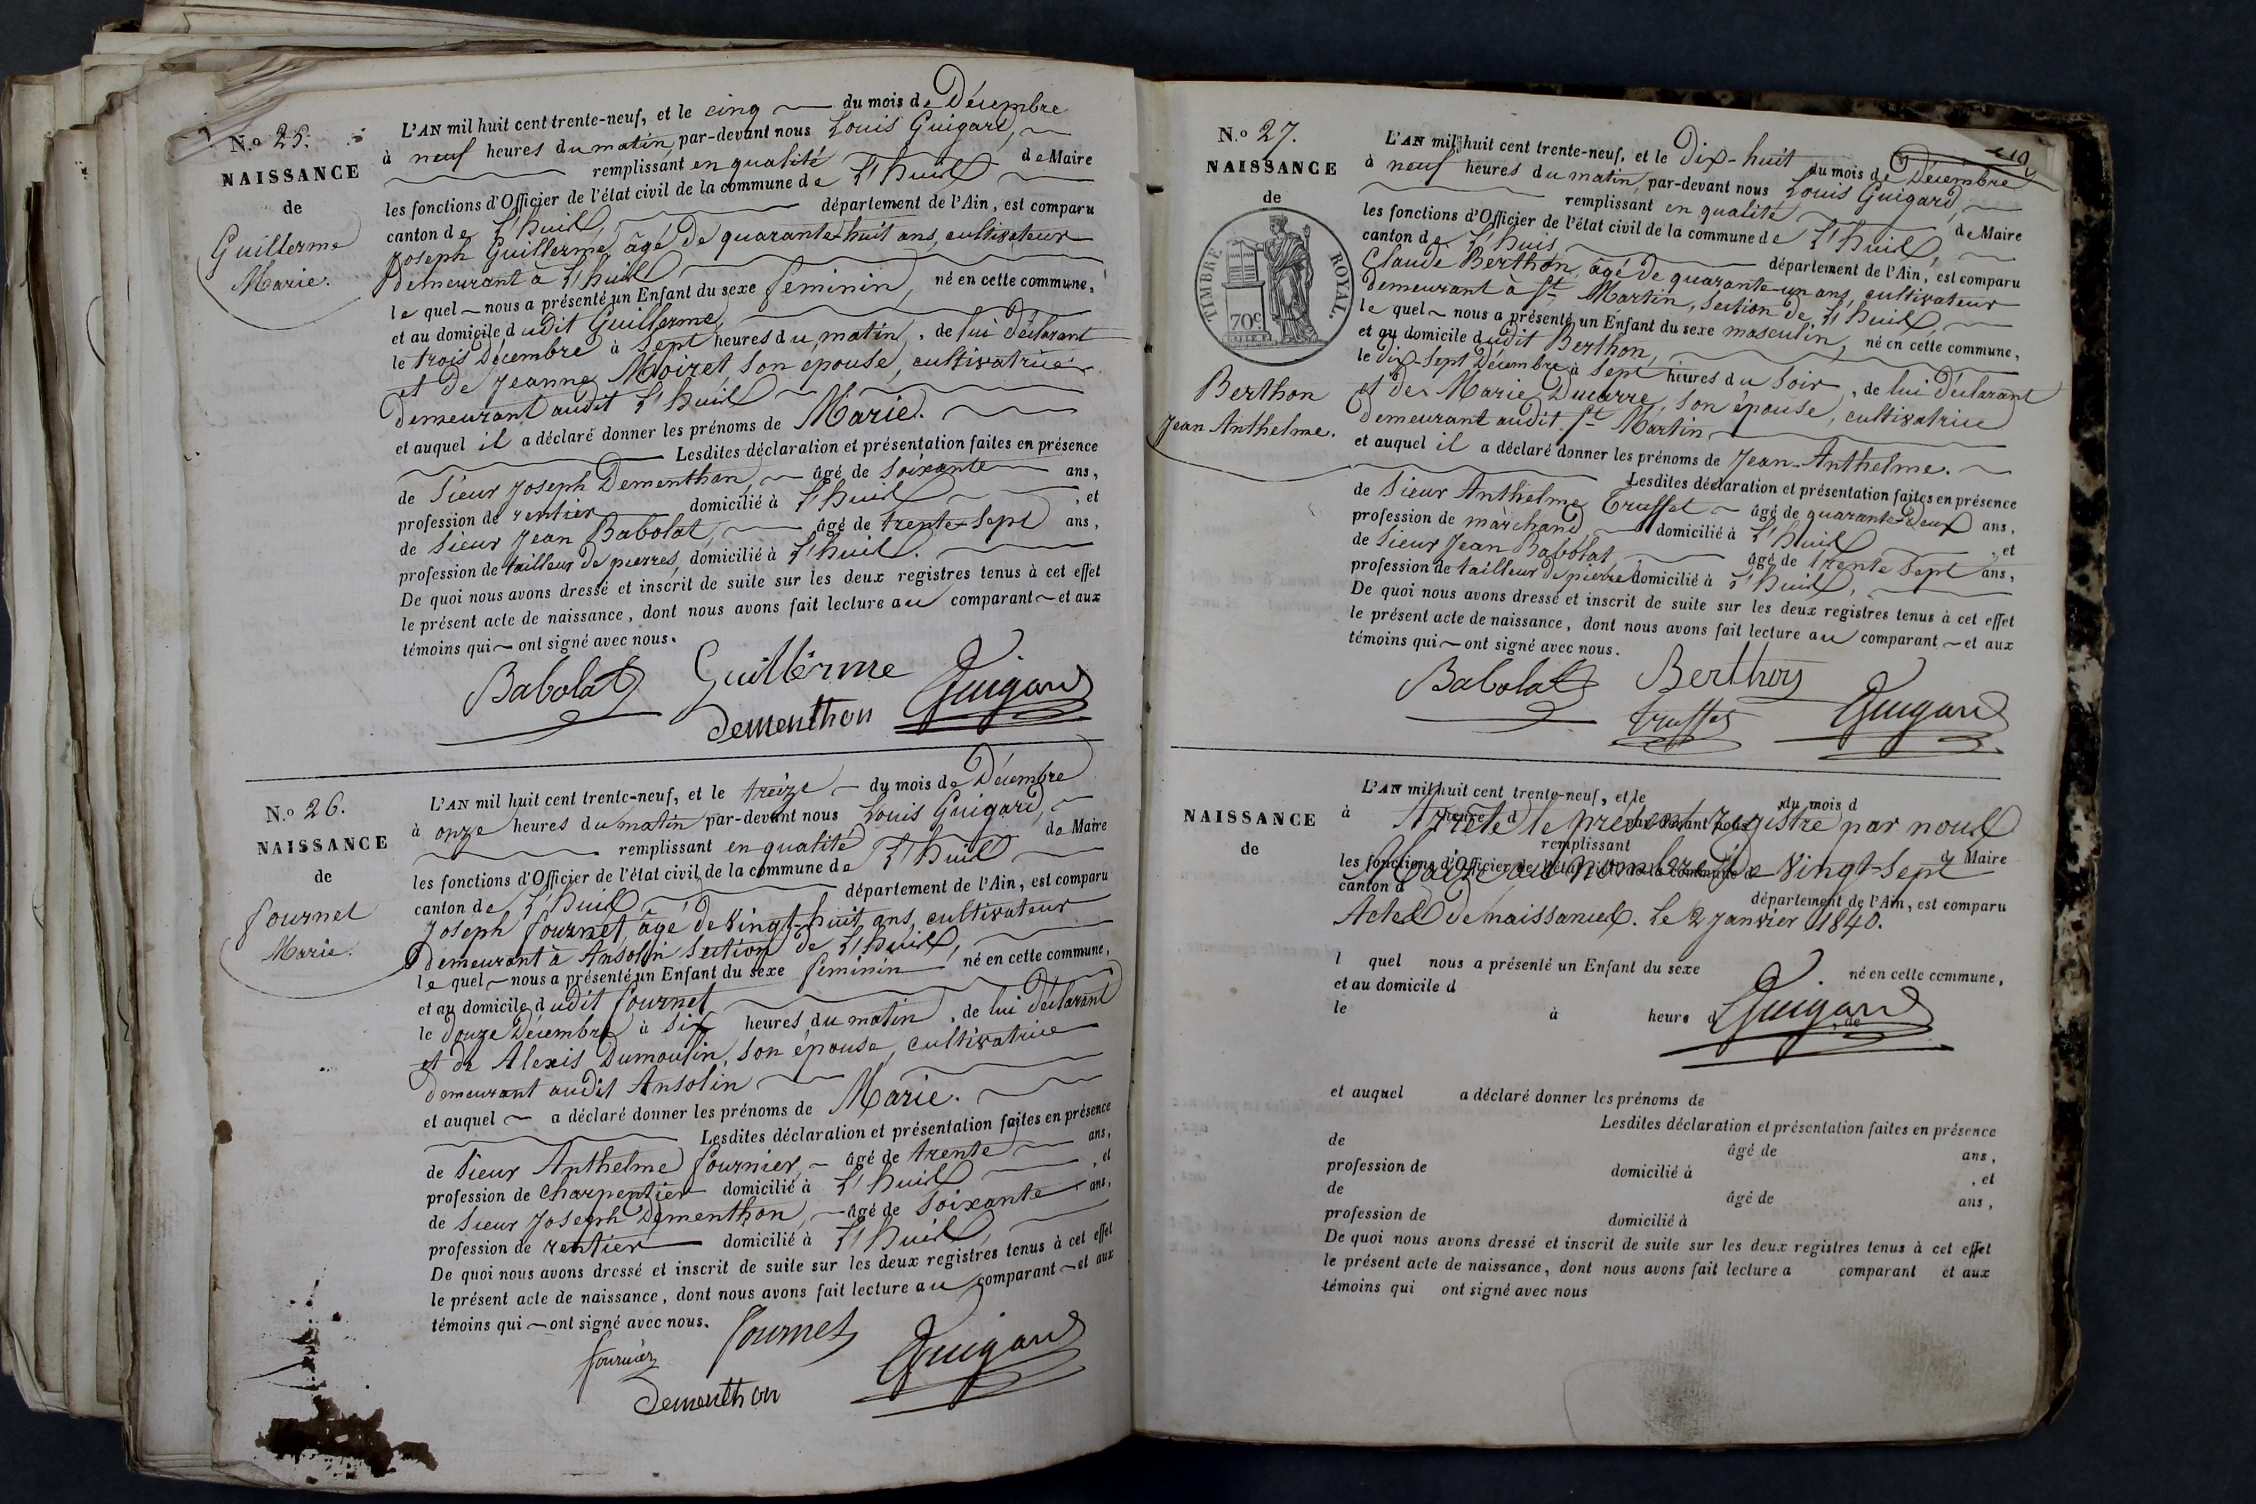 N.o 25.
NAISSANCE
de
Guillerme
Marie.
L'AN mil huit cent trente-neuf, et le cinq du mois de Décembre
à neuf heures du matin, par-devant nous Louis Guigard,
remplissant en qualité de Maire
les fonctions d'Officier de l'état civil de la commune de L'huis
canton de L'huis, département de l'Ain, est comparu
Joseph Guillerme, âgé de quarante-huit ans, cultivateur
demeurant à L'huis
le quel nous a présenté un Enfant du sexe feminin, né en cette commune,
et au domicile dudit Guillerme,
le trois Décembre à sept heures du matin, de lui déclarant
et de Jeanne Moiret son épouse, cultivatrice
demeurant audit L'huis
et auquel il a déclaré donner les prénoms de Marie.
Lesdites déclaration et présentation faites en présence
de Sieur Joseph Dementhon, âgé de soixante ans,
profession de rentier domicilié à L'huis, et
de Sieur Jean Babolat, âgé de trente-sept ans,
profession de tailleur de pierres, domicilié à L'huis.
De quoi nous avons dressé et inscrit de suite sur les deux registres tenus à cet effet
le présent acte de naissance, dont nous avons fait lecture au comparant et aux
témoins qui ont signé avec nous.
Babolat Guillerme Guigard
Dementhon
N.o 26.
NAISSANCE
de
Fournet
Marie.
L'AN mil huit cent trente-neuf, et le treize du mois de Décembre
à onze heures du matin par-devant nous Louis Guigard,
remplissant en qualité de Maire
les fonctions d'Officier de l'état civil de la commune de L'huis
canton de L'huis département de l'Ain, est comparu
Joseph Fournet, âgé de vingt-huit ans, cultivateur
demeurant à Ansolin section de L'huis,
le quel nous a présenté un Enfant du sexe feminin né en cette commune,
et au domicile dudit Fournet
le douze Décembre à six heures du matin, de lui déclarant
et de Alexis Dumoulin, son épouse, cultivatrice
demeurant audit Ansolin
et auquel a déclaré donner les prénoms de Marie.
Lesdites déclaration et présentation faites en présence
de Sieur Anthelme Fournier, âgé de trente ans,
profession de charpentier domicilié à L'huis, et
de Sieur Joseph Dementhon, âgé de soixante ans,
profession de rentier domicilié à L'huis,
De quoi nous avons dressé et inscrit de suite sur les deux registres tenus à cet effet
le présent acte de naissance, dont nous avons fait lecture au comparant et aux
témoins qui ont signé avec nous.
Fournier Fournet Guigard
Dementhon
N.o 27.
NAISSANCE
de
TIMBRE ROYAL.
70c
Berthon
Jean Anthelme.
L'AN mil huit cent trente-neuf, et le Dix-huit du mois de Décembre
à neuf heures du matin, par-devant nous Louis Guigard,
remplissant en qualité de Maire
les fonctions d'Officier de l'état civil de la commune de L'huis,
canton de L'huis département de l'Ain, est comparu
Claude Berthon, âgé de quarante-un ans, cultivateur
demeurant à St Martin, section de L'huis,
le quel nous a présenté un Enfant du sexe masculin, né en cette commune,
et au domicile dudit Berthon,
le dix-sept Décembre à sept heures du soir, de lui déclarant
et de Marie Ducarre, son épouse, cultivatrice
demeurant audit St Martin
et auquel il a déclaré donner les prénoms de Jean-Anthelme.
Lesdites déclaration et présentation faites en présence
de Sieur Anthelme Truffet âgé de quarante-deux ans,
profession de marchand domicilié à L'huis, et
de Sieur Jean Babolat âgé de trente sept ans,
profession de tailleur de pierre domicilié à L'huis,
De quoi nous avons dressé et inscrit de suite sur les deux registres tenus à cet effet
le présent acte de naissance, dont nous avons fait lecture au comparant et aux
témoins qui ont signé avec nous.
Babolat Berthon
Truffet Guigard
NAISSANCE
de
L'AN mil huit cent trente-neuf, et le du mois d
à heure d par-devant nous
Arrêté le présent registre par nous
remplissant d Maire
les fonctions d'Officier de l'état civil de la commune d
Maire au nombre de Vingt-Sept
canton d département de l'Ain, est comparu
Actes de naissances. Le 2 Janvier 1840.
l quel nous a présenté un Enfant du sexe né en cette commune,
et au domicile d
le à heure d , de
Guigard
et auquel a déclaré donner les prénoms de
Lesdites déclaration et présentation faites en présence
de âgé de ans,
profession de domicilié à , et
de âgé de ans,
profession de domicilié à
De quoi nous avons dressé et inscrit de suite sur les deux registres tenus à cet effet
le présent acte de naissance, dont nous avons fait lecture a comparant et aux
témoins qui ont signé avec nous